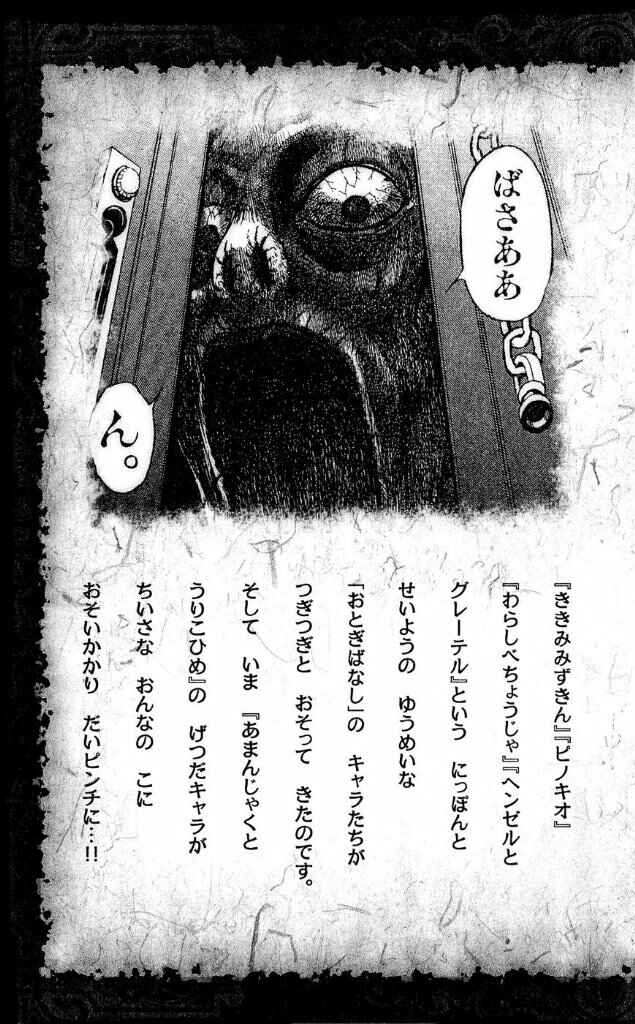 ばさああ
ん。
『ききみみずきん』『ピノキオ』
『わらしべちょうじゃ』『ヘンゼルと
グレーテル』という　にっぽんと
せいようの　ゆうめいな
「おとぎばなし」の　キャラたちが
つぎつぎと　おそって　きたのです。
そして　いま　『あまんじゃくと
うりこひめ』の　げつだキャラが
ちいさな　おんなの　こに
おそいかかり　だいピンチに…!!